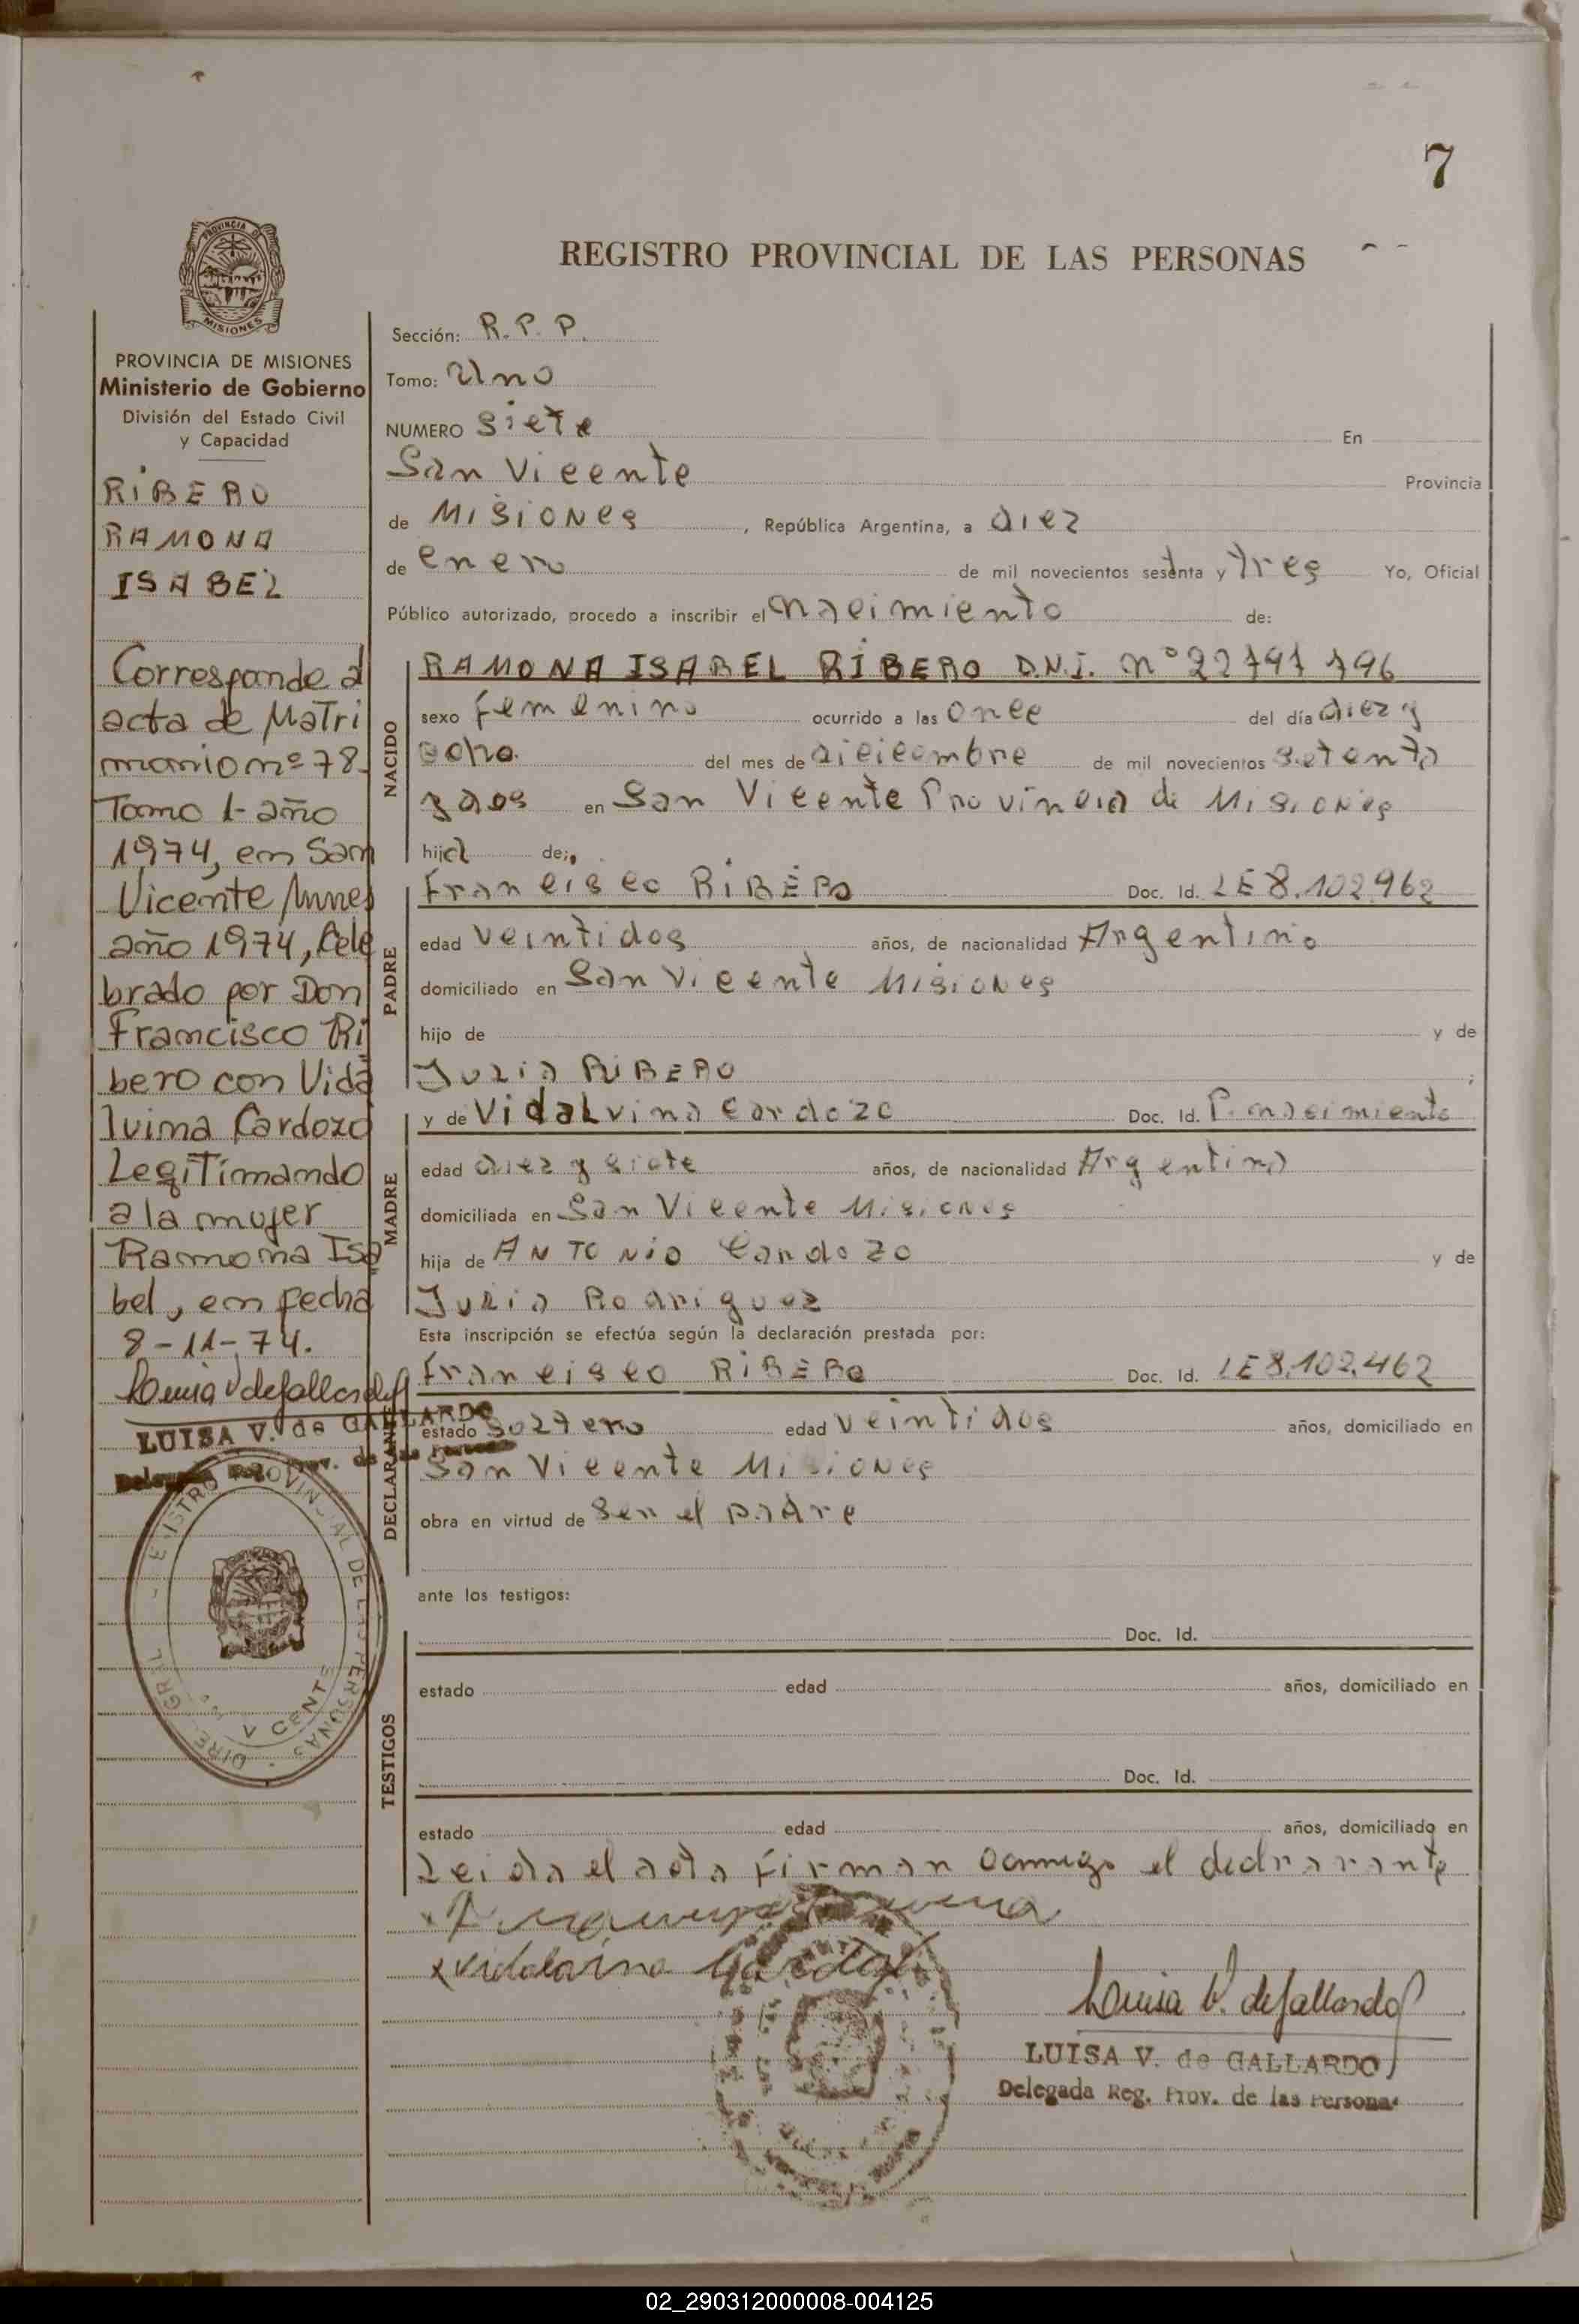 7
REGISTRO PROVINCIAL DE LAS PERSONAS
PROVINCIA DE
MISIONES
PROVINCIA DE MISIONES
Ministerio de Gobierno
División del Estado Civil
y Capacidad
RIBERO
RAMONA
ISABEL
Corresponde a
acta de Matri
monio nº 78.
Tomo 1- año
1974, en San
Vicente Mnes
año 1974, Cele
brado por Don
Francisco Ri
bero con Vida
lvina Cardozo
Legitimando
a la mujer
Ramona Isa
bel, en fecha
8-11-74.
Luisa V. de Gallardo
LUISA V. de GALLARDO
Delegada Reg. Prov. de las Personas
DIRE. GRAL. REGISTRO PROVINCIAL DE LAS PERSONAS
VICENTE
Sección: R.P.P.
Tomo: Uno
NUMERO siete En
San Vicente Provincia
de Misiones, República Argentina, a diez
de enero de mil novecientos setenta y tres Yo, Oficial
Público autorizado, procedo a inscribir el nacimiento de:
NACIDO
RAMONA ISABEL RIBERO D.N.I. nº
sexo femenino ocurrido a las once del día diez y
ocho. del mes de diciembre de mil novecientos setenta
y dos en San Vicente Provincia de Misiones
hija de:
PADRE
Francisco RIBERO Doc. Id. LE 8.102.962
edad veintidos años, de nacionalidad Argentino
domiciliado en San Vicente Misiones
hijo de y de
Julia RIBERO ;
MADRE
y de Vidalvina Cardozo Doc. Id. P. nacimiento
edad diez y siete años, de nacionalidad Argentina
domiciliada en San Vicente Misiones
hija de ANTONIO Cardozo y de
Julia Rodriguez
Esta inscripción se efectúa según la declaración prestada por:
DECLARANTE
Francisco RIBERO Doc. Id. LE 8.102.462
estado soltero edad veintidos años, domiciliado en
San Vicente Misiones
obra en virtud de ser el padre
ante los testigos:
TESTIGOS
Doc. Id.
estado edad años, domiciliado en
Doc. Id.
estado edad años, domiciliado en
Leida el acta firman conmigo el declarante
x vidalvina Cardozo
Luisa V. de Gallardo
LUISA V. de GALLARDO
Delegada Reg. Prov. de las Personas
02_290312000008-004125